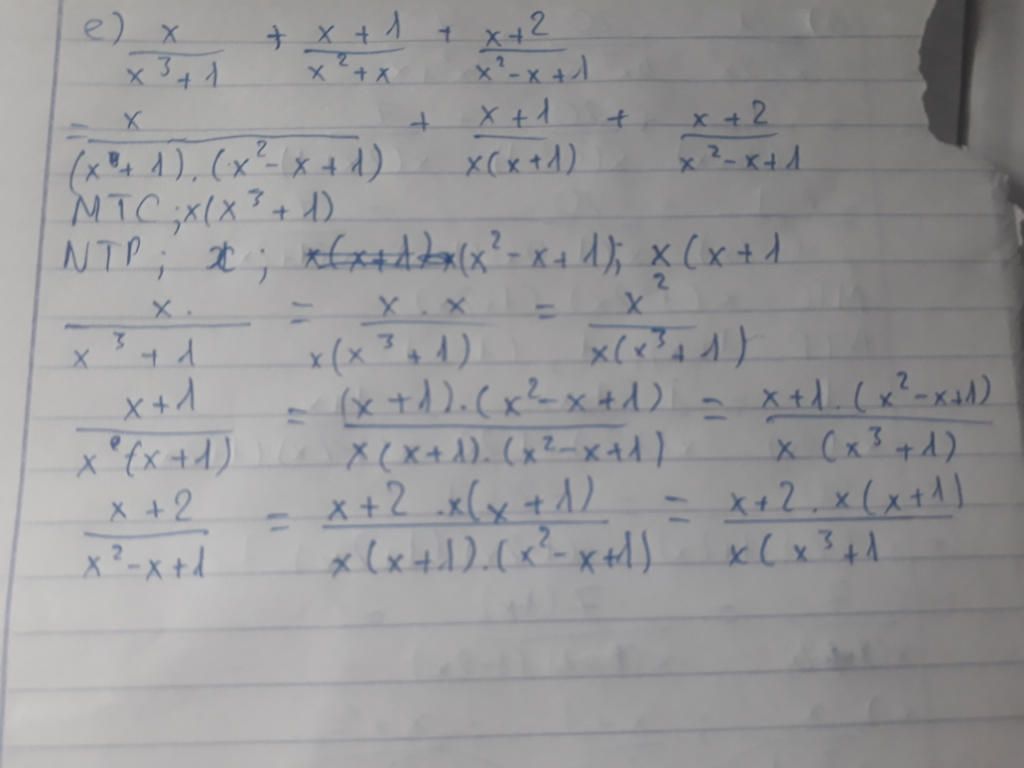 e) x/(x³+1) + (x+1)/(x²+x) + (x+2)/(x²-x+1)
= x/((x+1).(x²-x+1)) + (x+1)/(x(x+1)) + (x+2)/(x²-x+1)
MTC; x(x³+1)
NTP; x; (x²-x+1); x(x+1
x./(x³+1) = x.x/(x(x³+1)) = x²/(x(x³+1))
(x+1)/(x(x+1)) = (x+1).(x²-x+1)/(x(x+1).(x²-x+1)) = x+1.(x²-x+1)/(x(x³+1))
(x+2)/(x²-x+1) = x+2.x(x+1)/(x(x+1).(x²-x+1)) = x+2.x(x+1)/(x(x³+1